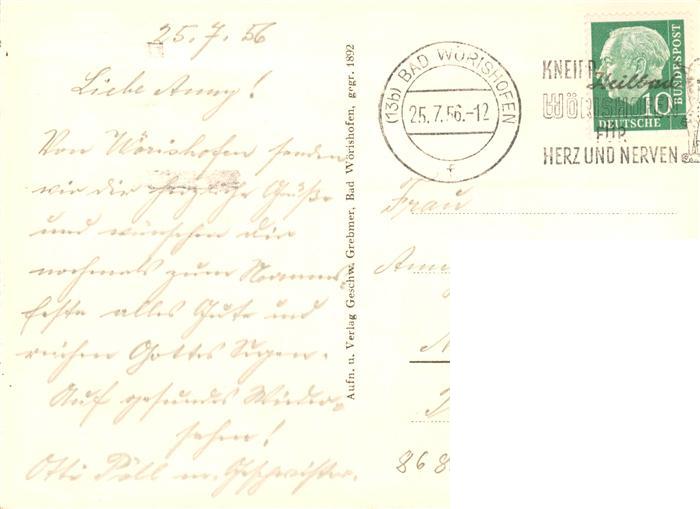 25.7.56
Liebe Anny!
Von Wörishofen senden
wir dir herzliche Grüße
und wünschen dir
nochmals zum Namens-
feste alles Gute und
reichen Gottes Segen.
Auf gesundes Wieder-
sehen!
Otti Pöll m. Geschwister.
Aufn. u. Verlag Geschw. Grebmer, Bad Wörishofen, gegr. 1892
(13b) BAD WÖRISHOFEN
25.7.56.-12
f
KNEIPP
Heilbad
WÖRISHOFEN
FÜR
HERZ UND NERVEN
10
DEUTSCHE
BUNDESPOST
Frau
868